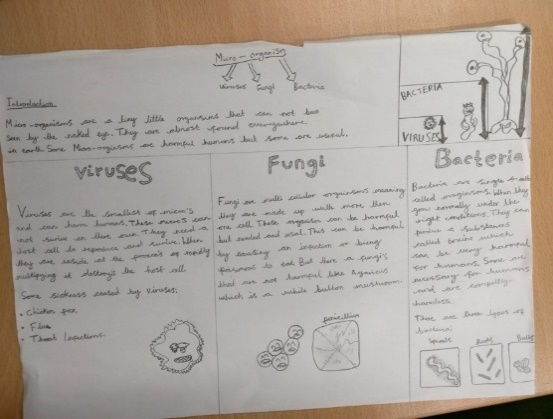 Micro-organism
Viruses Fungi Bacteria
Introduction
Micro-organisms are a tiny little organisms that can not bee
seen by the naked eye. They are almost found everywhere
in earth. Some Micro-organisms are harmful humans but some are useful.
BACTERIA
VIRUSES
Viruses
Viruses are the smallest of micro's
and can harm humans. These micro's can
not survive on there own. They need a
host cell to reproduce and survive. When
they are inside at the process of rapidly
multiplying it destroys the host cell.
Some sickness caused by viruses:
• Chicken pox
• Flue
• Throat Infections
Fungi
Fungi are multi cellular organisms meaning
they are made up with more then
one cell. These organism can be harmful
but useful. This can be harmful
by causing an infection or being
poisonous to eat. But there a fungi's
that are not harmful like Agaricus
which is a white button mushroom.
penicillium
Bacteria
Bacteria are single
celled organisms. When they
grow normally under the
right conditions. They can
produce a substance
called which
can be very harmful
for humans. Some are
necessary for humans
and are completly
harmless.
There are three types of
bacteria:
Spirals Rods